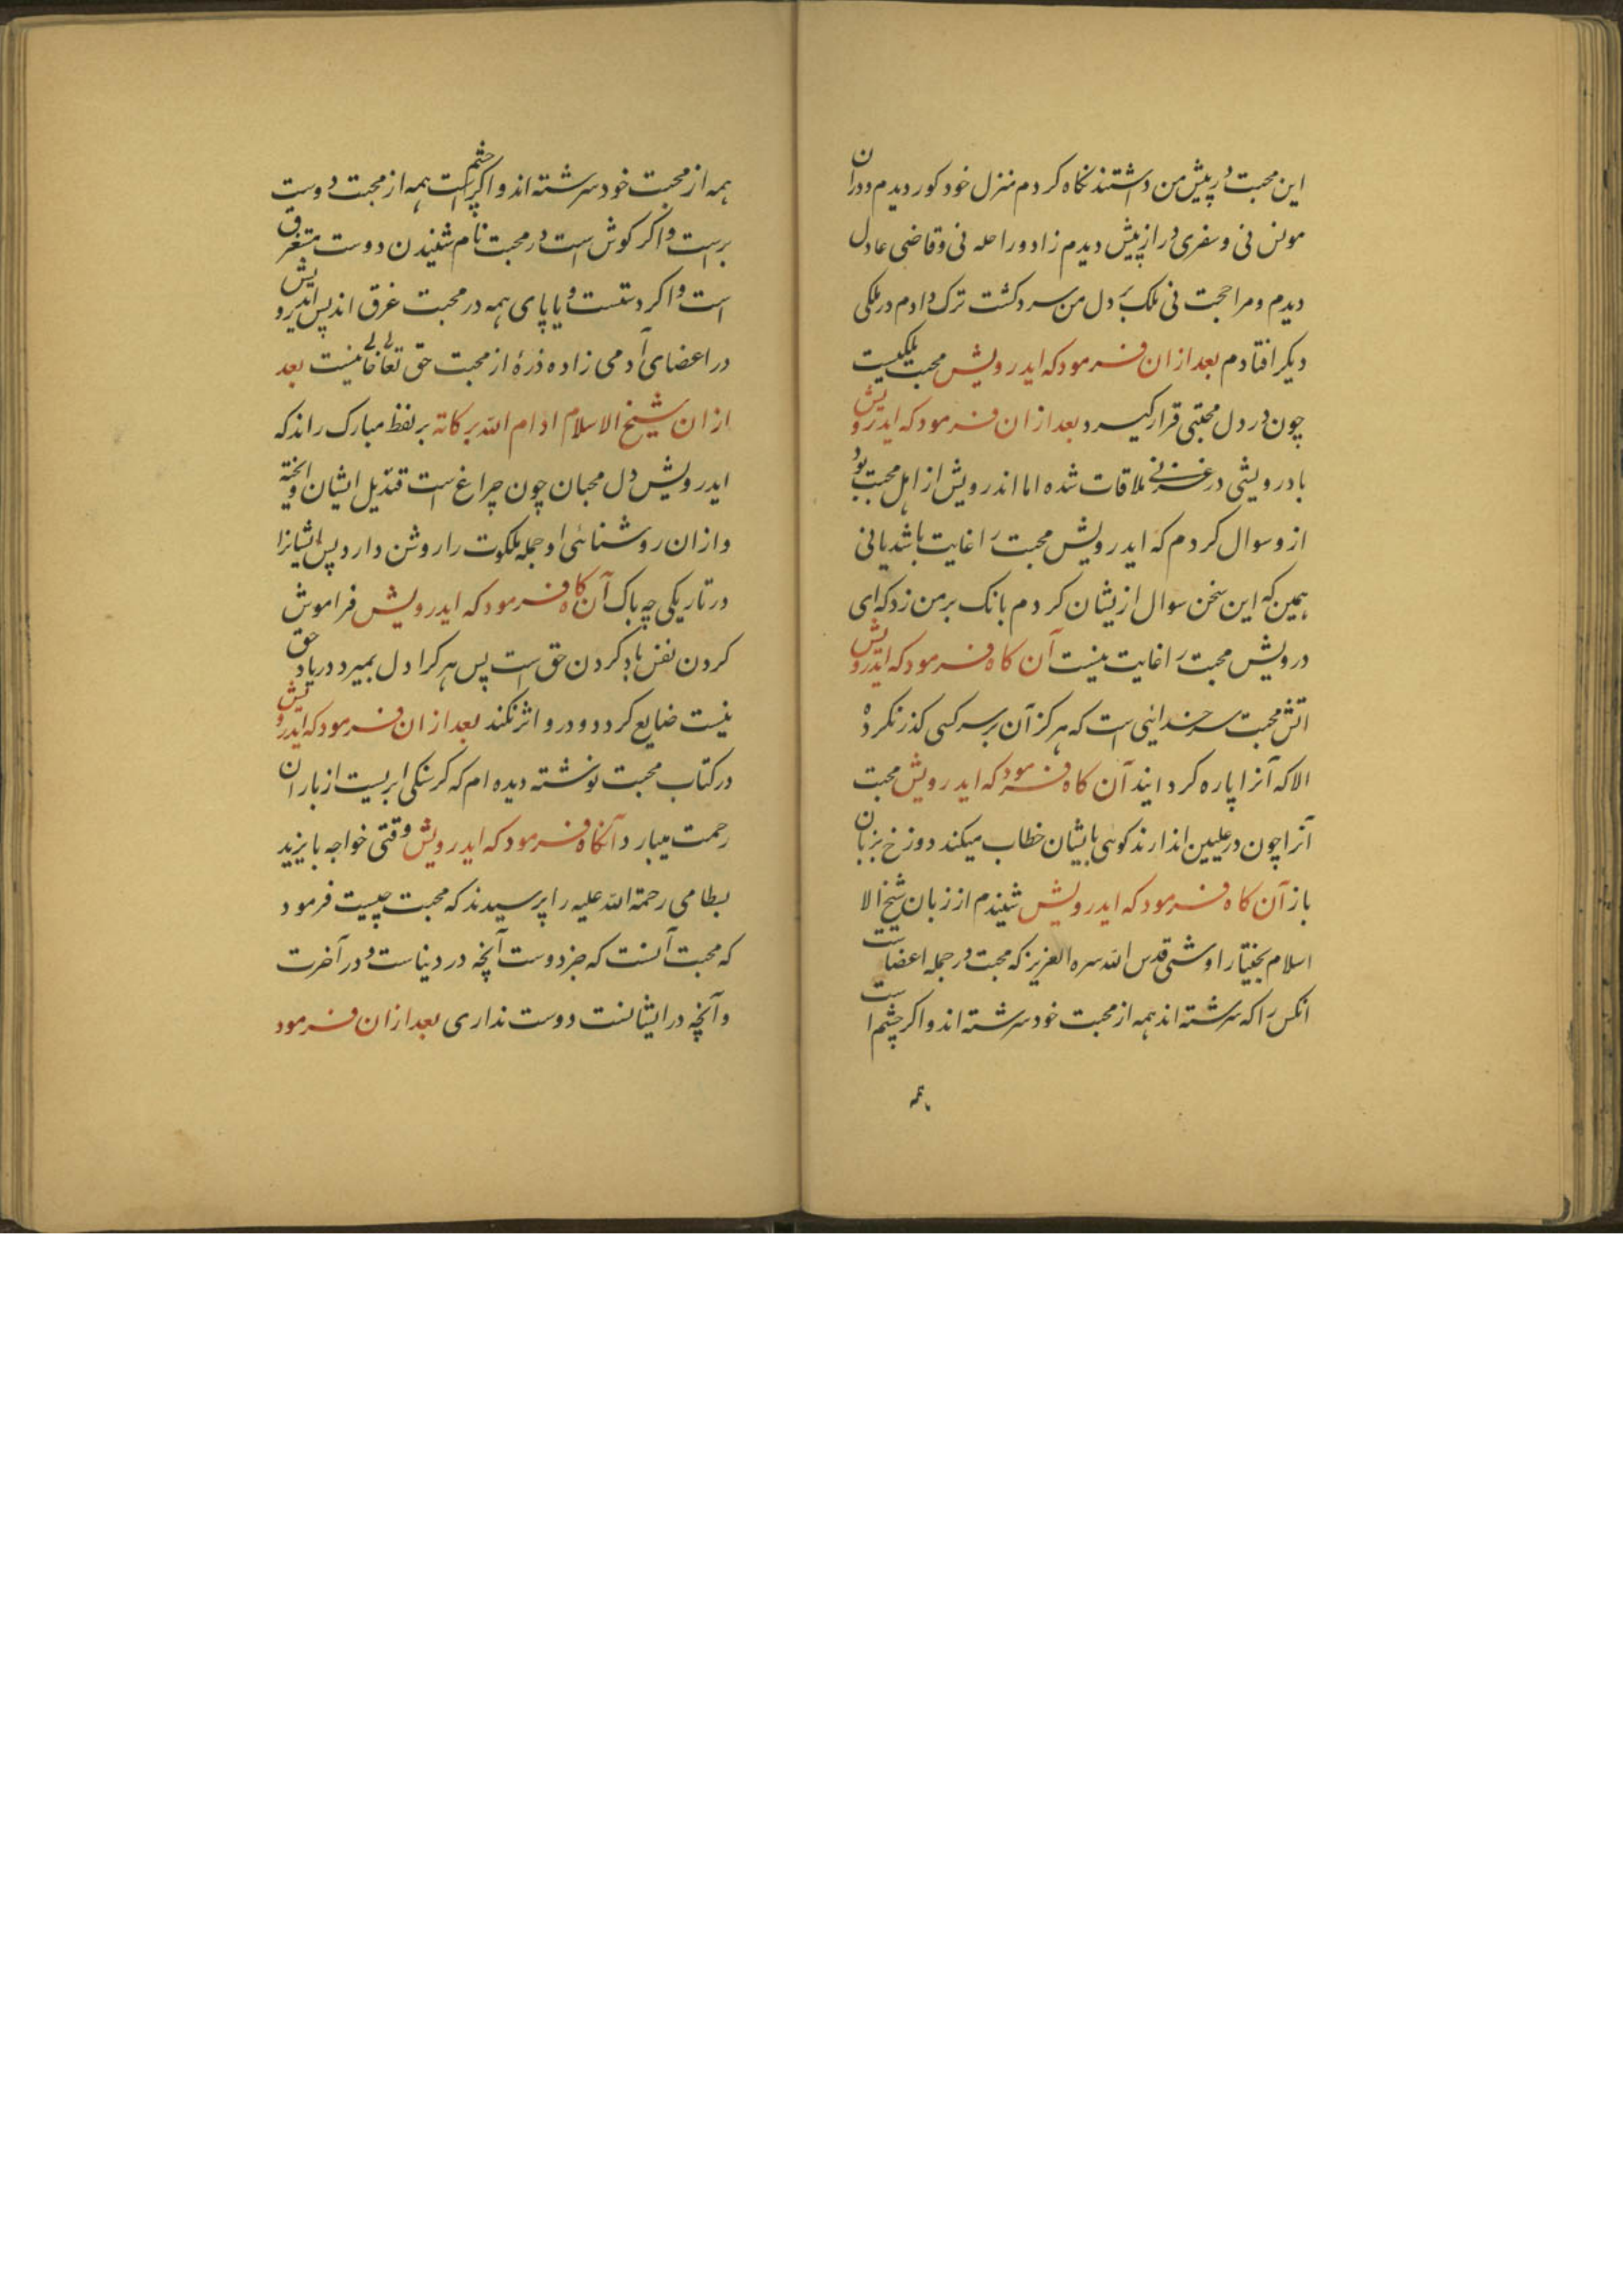 این محبت در پیش من داشتند نکاه کردم منزل خود کور دیدم ودران
مونس نی و سفری دراز پیش دیدم زاد وراحله نی وقاضی عادل
دیدم ومرا حجت نی ملک دل من سرد کشت ترک دادم در ملکی
دیکر افتادم بعد ازان فرمود که ایدرویش محبت ملکیست
چون در دل محبتی قرار کیرد بعد ازان فرمود که ایدرویش
با درویشی در غزنی ملاقات شده اما اندرویش از اهل محبت بود
ازو سوال کردم که ایدرویش محبت را غایت باشد یا نی
همین که این سخن سوال ازیشان کردم بانک برمن زد که ای
درویش محبت را غایت نیست آن کاه فرمود که ایدرویش
اتش محبت است که هرکز آن بر سر کسی کذر نکرده
الا که آنرا پاره کردایند آن کاه فرمود که ایدرویش محبت
آنرا چون در علیین اندارند کوئی بایشان خطاب میکند دوزخ بزبان
باز آن کاه فرمود که ایدرویش شنیدم از زبان شیخ الا
اسلام بختیار اوشی قدس الله سره العزیز که محبت در جمله اعضاست
انکس را که سرشته اند همه از محبت خود سرشته اند واکر چشم است
همه
همه از محبت خود سرشته اند واکر چشم است همه از محبت دوست
براست واکر کوش است در محبت نام شنیدن دوست مستغرق
است واکر دستست ویا پای همه در محبت غرق اند پس ایدرویش
در اعضای آدمی زاده ذرهٔ از محبت حق تعالی خالی نیست بعد
ازان شیخ الاسلام ادام الله برکاته بر لفظ مبارک راند که
ایدرویش دل محبان چون چراغ است قندیل ایشان واویخته
وازان روشنائی او جمله ملکوت را روشن دارد پس ایشانرا
در تاریکی چه باک آن کاه فرمود که ایدرویش فراموش
کردن نفس یاد کردن حق است پس هر کرا دل بمیرد در یاد حق
نیست ضایع کردد و درو اثر نکند بعد ازان فرمود که ایدرویش
در کتاب محبت نوشته دیده ام که کرسنکی ابریست از باران
رحمت میبارد آنکاه فرمود که ایدرویش وقتی خواجه بایزید
بسطامی رحمة الله علیه را پرسیدند که محبت چیست فرمود
که محبت آنست که جز دوست آنچه در دنیاست و در آخرت
وآنچه در ایشانست دوست نداری بعد ازان فرمود